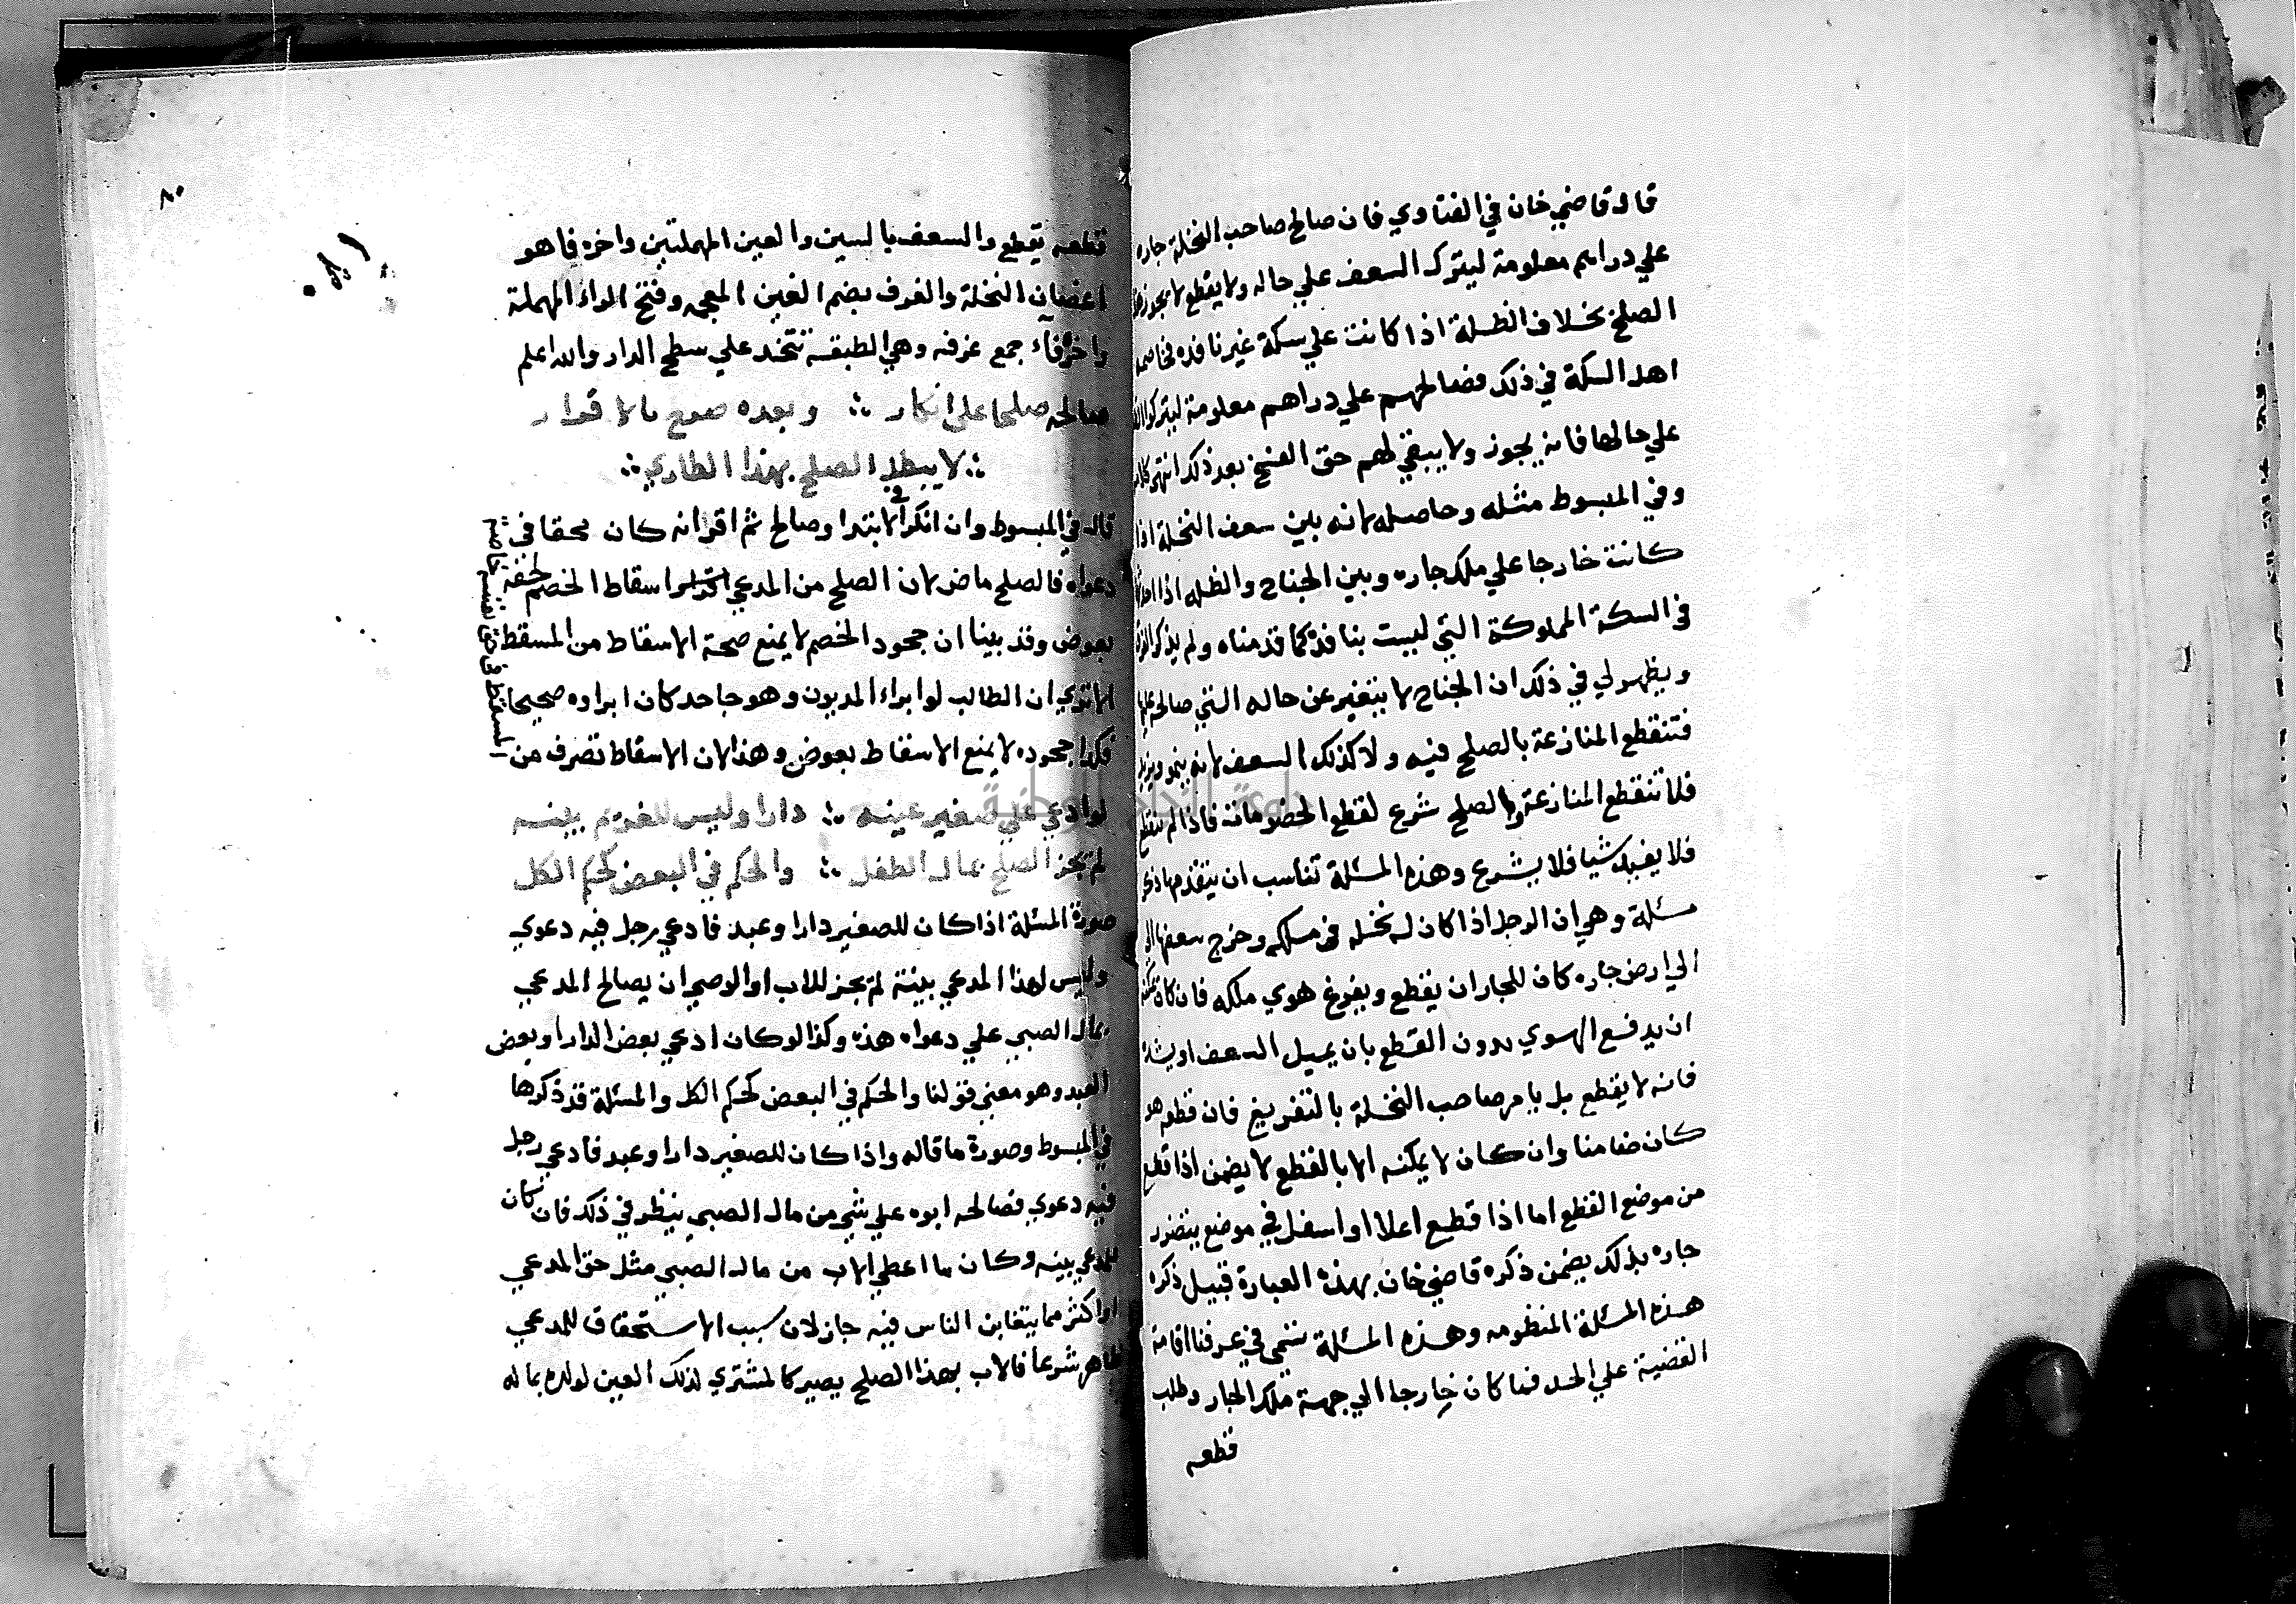 قال قاضي خان في الفتاوي فان صالح صاحب النخلة جاره
علي دراهم معلومة ليترك السعف علي حاله ولا يقطع لا يجوز هذا
الصلح بخلاف الظلة اذا كانت علي سكة غير نافذه فخاصمه
اهل السكة في ذلك فصالحهم علي دراهم معلومة ليتركوا
علي حالها فانه يجوز ولا يبقي لهم حق الفسخ بعد ذلك انتهي
وفي المبسوط مثله وحاصله لانه بين سعف النخلة اذا
كانت خارجا علي ملك جاره وبين الجناح والظله اذا
في السكة المملوكة التي ليست بنافذة كما قدمناه ولم يذكر الفرق
ويظهر لي في ذلك ان الجناح لا يتغير عن حاله التي صالح عليها
فتنقطع المنازعة بالصلح فيه ولا كذلك السعف لانه ينمو ويزيد
فلا تنقطع المنازعة والصلح شرع لقطع الخصومات فاذا لم تنقطع
فلا يفيدك شيا فلا يشرع وهذه المسئلة تناسب ان يتقدمها ذكر
مسئلة وهي ان الرجل اذا كان له نخله في ملكه وخرج سعفها الي
الي ارض جاره كان للجار ان يقطع ويفرغ هوي ملكه فان كان
ان يدفع الهوي بدون القطع بان يميل السعف او يشد
فانه لا يقطع بل يامر صاحب النخلة بالتفريغ فان قطعه هو
كان ضامنا وان كان لا يمكنه الا بالقطع لا يضمن اذا قطع
من موضع القطع اما اذا قطع اعلا او اسفل في موضع يتضرر
جاره بذلك يضمن ذكره قاضي خان بهذه العبارة قبيل ذكره
هذه المسئلة المنظومه وهذه المسئلة تسمي في عرفنا اقامة
القضية علي الحد فما كان خارجا الي جهة ملك الجار وطلب
قطعه
٨٠
قطعه يقطع والسعف بالسين والعين المهملتين واخره فا هو
اغصان النخلة والغرف بضم الغين المعجمه وفتح الراء المهملة
واخره فآء جمع غرفه وهي الطبقه تتخذ علي سطح الدار والله اعلم
صالحه صلحا علي انكار ؞ وبعده صرح بالاقرار
؞ لا يبطل الصلح بهذا الطاري ؞
قال في المبسوط وان انكر في الابتدا وصالح ثم اقر انه كان محقا في
دعواه فالصلح ماض لان الصلح من المدعي اسقاط الخصم لحقه
بعوض وقد بينا ان جحود الخصم لا يمنع صحة الاسقاط من المسقط
الا تري ان الطالب لو ابراء المديون وهو جاحد كان ابراوه صحيحا
فكذا جحوده لا يمنع الاسقاط بعوض وهذا لان الاسقاط تصرف من
المسقط في حق نفسه خاصة
لو ادعي علي صغير عينه ؞ دارا وليس للغريم بينه
لم يجز الصلح بمال الطفل ؞ والحكم في البعض كحكم الكل
صورة المسئلة اذا كان للصغير دارا وعبد فادعي رجل فيه دعوي
وليس لهذا المدعي بينة لم يجز للاب او الوصي ان يصالح المدعي
بمال الصبي علي دعواه هذه وكذا لو كان ادعي بعض الدار او بعض
العبد وهو معني قولنا والحكم في البعض كحكم الكل والمسئلة قد ذكرها
في المبسوط وصورة ما قاله واذا كان للصغير دارا وعبد فادعي رجل
فيه دعوي فصالحه ابوه علي شي من مال الصبي ينظر في ذلك فان كان
للمدعي بينه وكان ما اعطي الاب من مال الصبي مثل حق المدعي
او اكثر مما يتغابن الناس فيه جاز لان سبب الاستحقاق للمدعي
ظاهر شرعا فالاب بهذا الصلح يصير كالمشتري لذلك العين لولده بماله